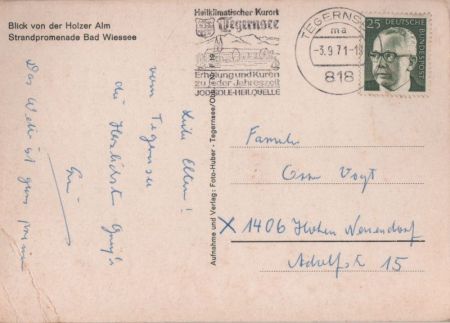 Blick von der Holzer Alm
Strandpromenade Bad Wiessee
Heilklimatischer Kurort
Tegernsee
Erholung und Kuren
zu jeder Jahreszeit
JODSOLE-HEILQUELLE
TEGERNS
ma
-3.9.71-18
818
25
DEUTSCHE
BUNDESPOST
Liebe Eltern!
vom Tegernsee
die herzlichsten Grüße
Das Wetter ist ganz prima
Aufnahme und Verlag: Foto-Huber · Tegernsee/Obb.
Familie
Oss. Vogt
X 1406 Hohen Neuendorf
Adolfst 15